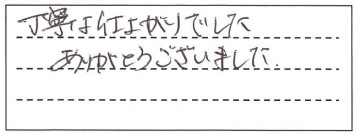 丁寧な仕上がりでした
ありがとうございました.